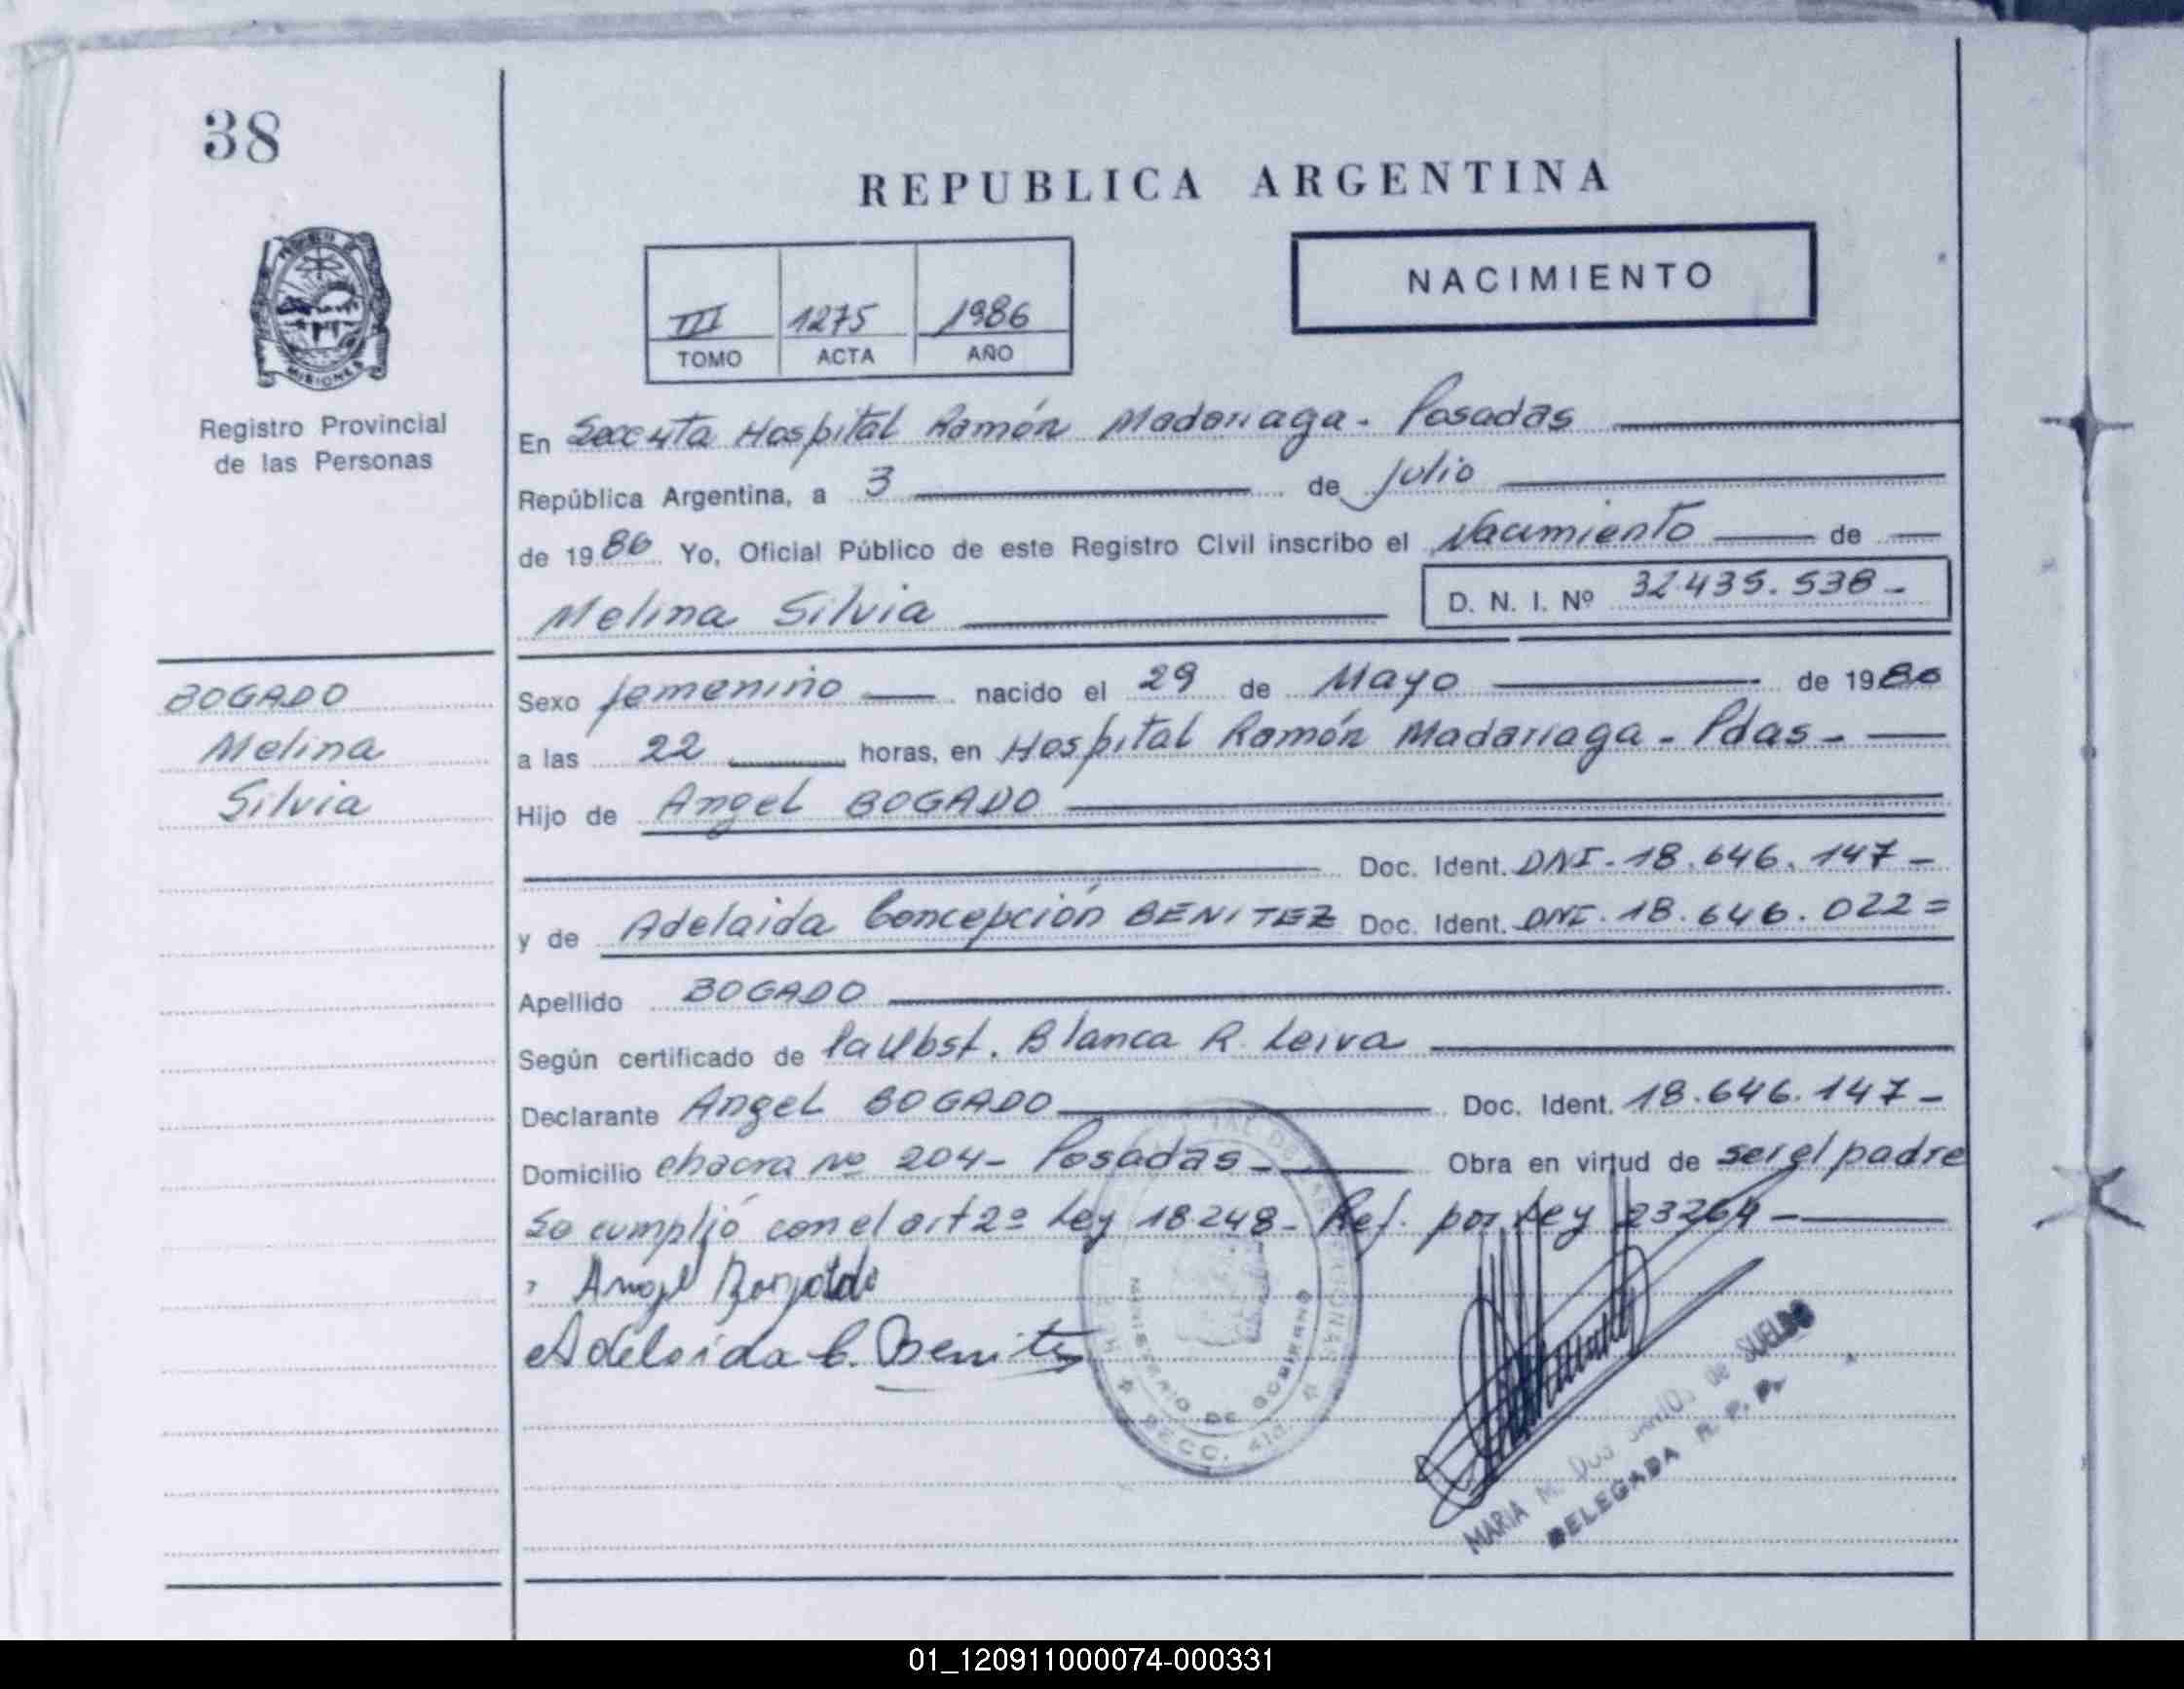 38
REPUBLICA ARGENTINA
NACIMIENTO
III 1275 1986
TOMO ACTA AÑO
MISIONES
Registro Provincial
de las Personas
En Hospital Ramón Madariaga - Posadas
República Argentina, a 3 de Julio
de 1986 Yo, Oficial Público de este Registro Civil inscribo el Nacimiento de
Melina Silvia D. N. I. Nº 32.435.538-
BOGADO
Melina
Silvia
Sexo femenino nacido el 29 de Mayo de 1986
a las 22 horas, en Hospital Ramón Madariaga - Pdas -
Hijo de Angel BOGADO
Doc. Ident. DNI - 18.646.147 -
y de Adelaida Concepción BENITEZ Doc. Ident. DNI - 18.646.022 =
Apellido BOGADO
Según certificado de Blanca R. Leiva
Declarante Angel BOGADO Doc. Ident. 18.646.147 -
Domicilio chacra nº 204 - Posadas - Obra en virtud de ser el padre
Se cumplió con el art 2º Ley 18248 - Ref. por Ley 23264 -
Angel
Adelaida C. Benitez
MINISTERIO DE GOBIERNO
SECC. 4ta.
MARIA M. Dos Santos de SUELDO
DELEGADA R. P. P.
01_120911000074-000331